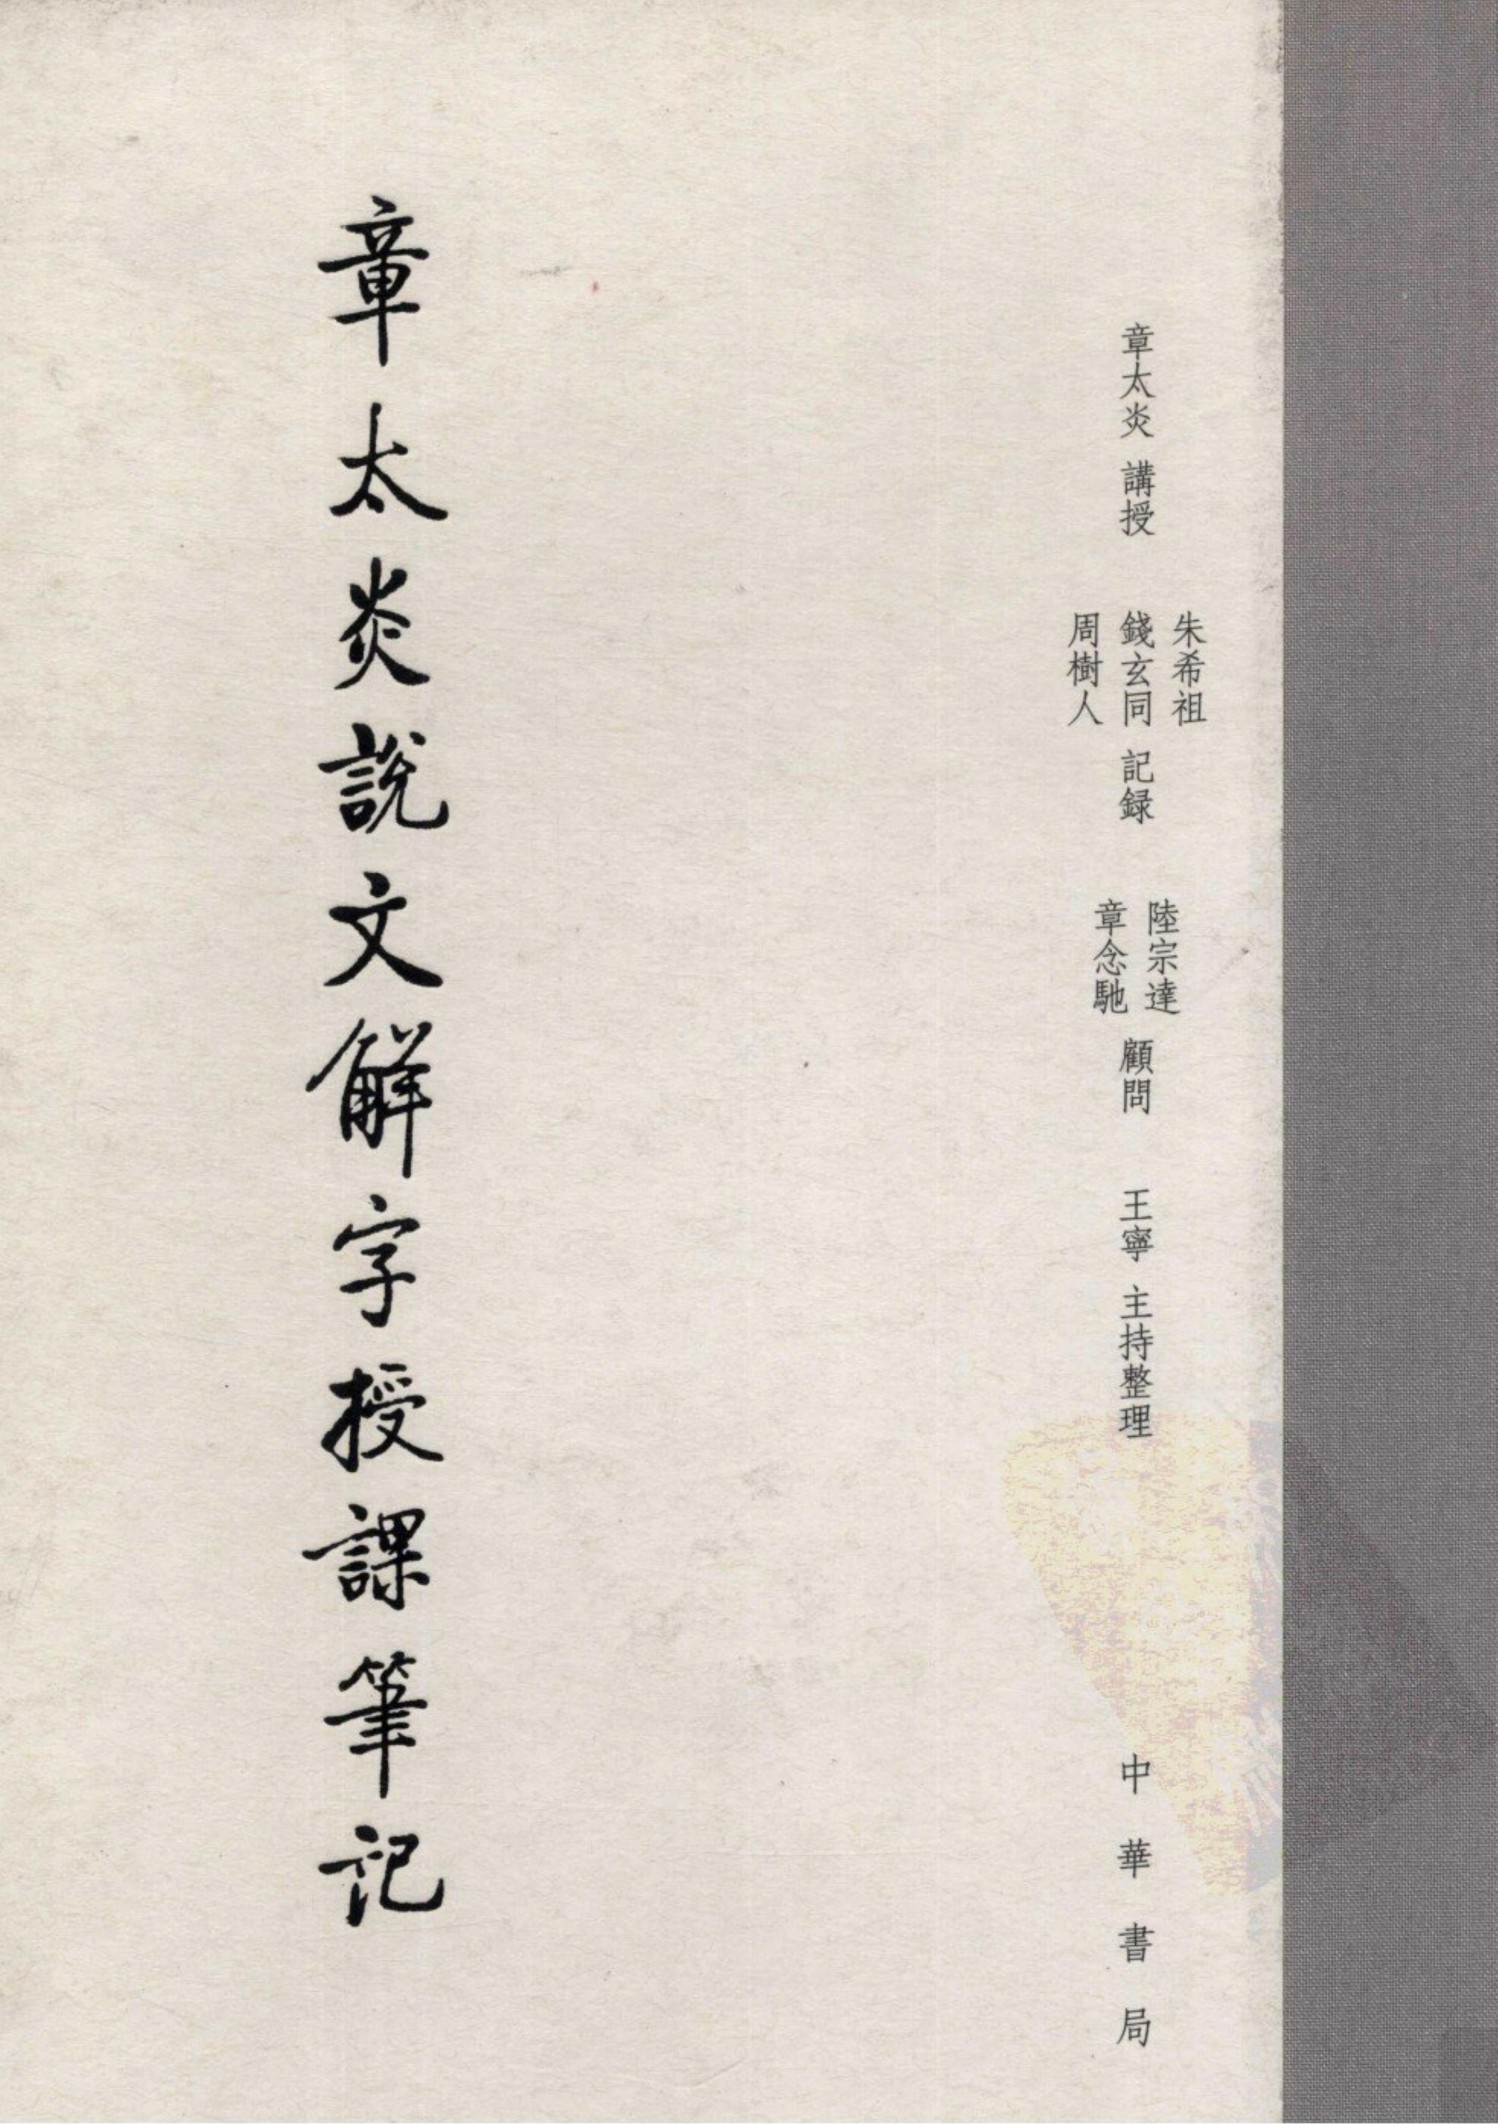 朱希祖
章太炎 講授 錢玄同 記録
周樹人
陸宗達
章念馳
顧問
王寧 主持整理
中華書局
章太炎說文解字授課筆記